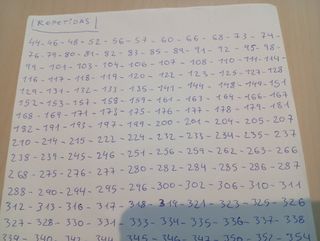 REPETIDAS
44-46-48-52-56-57-60-66-68-73-74-
76-79-80-81-82-83-85-89-91-92-95-98-
99-101-103-104-106-107-108-110-111-114-
116-117-118-119-120-122-123-125-127-128-
129-131-132-133-135-141-144-148-149-151
152-153-157-158-159-161-163-164-166-167
168-169-171-173-175-176-177-178-179-181
182-191-193-197-199-200-201-204-205-207
210-214-215-222-224-232-233-234-235-237
238-239-245-246-251-256-259-262-263-266
268-275-276-277-280-282-284-285-286-287
288-290-294-295-296-300-302-306-310-311
312-313-316-317-318-319-321-323-325-326
327-328-330-331-333-334-335-336-337-338
339-340-342-344-345-346-347-350-352-354